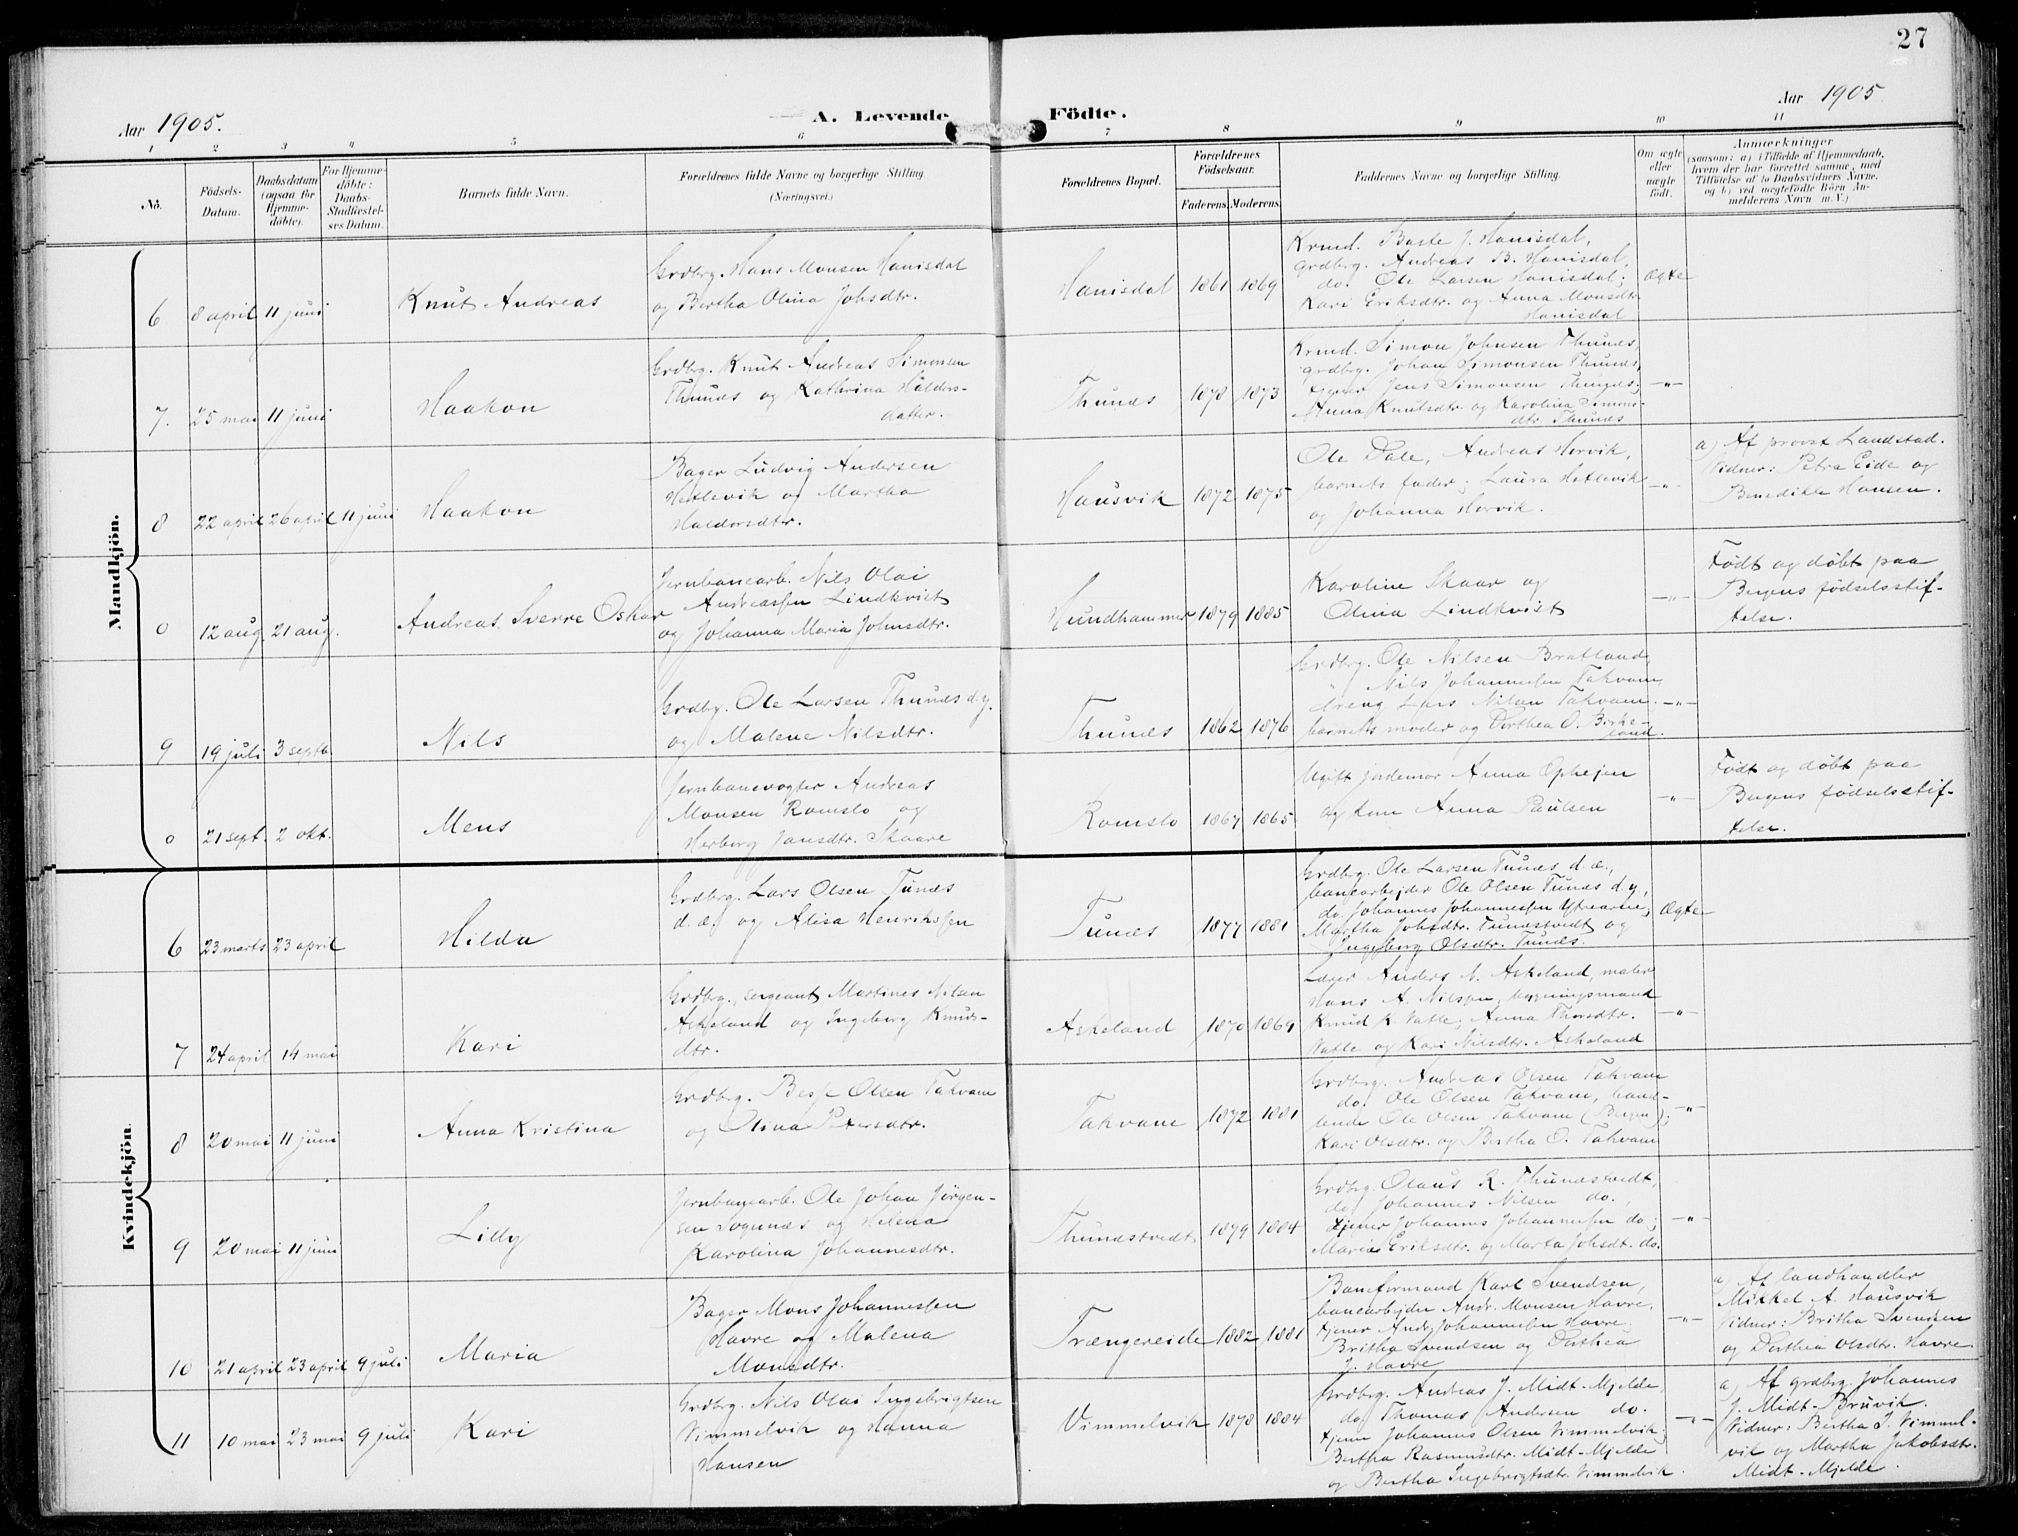 27
Aar 1905.
A. Levende Födte.
Aar 1905
1 2 3 4 5 6 7 8 9 10 11
No.
Födsels-Datum.
Daabsdatum (ogsaa for Hjemme-döbte).
For Hjemme-döbte: Daabs-Stadfæstel-ses Datum.
Barnets fulde Navn.
Forældrenes fulde Navne og borgerlige Stilling.
(Næringsvei.)
Forældrenes Bopæl.
Forældrenes Födselsaar.
Faderens. Moderens.
Faddernes Navne og borgerlige Stilling.
Om ægte eller uægte födt.
Anmærkninger
(saasom: a) i Tilfælde af Hjemmedaab, hvem der har forrettet samme, med Tilföielse af to Daabsvidners Navne, og b) ved uægtefödte Börn An-melderens Navn m. V.)
Mandkjön.
6 8 april 11 juni
Knut Andreas
Grdbrg. Hans Monsen Hanisdal
og Bertha Olina Johsdtr.
Hanisdal 1861 1869
Krmd. Baste J. Hanisdal,
grdbrg. Andreas B. Hanisdal,
do. Ole Larsen Hanisdal;
Kari Eriksdtr. og Anna Monsdtr.
Hanisdal
Ægte
7. 25 mai 11 juni
Haakon
Grdbrg. Knut Andreas Simonsen
Thunes og Kathrina Haldors-
datter.
Thunes 1878 1873
Krmd. Simon Johnsen Thunes,
grdbrg. Johan Simonsen Thunes,
tjener Jens Simonsen Thunes;
Anna Knutsdtr. og Karolina Simons-
dtr. Thunes
-"-
8 22 april 26 april 11 juni
Haakon
Bager Ludvig Andersen
Hetlevik og Martha
Haldorsdtr.
Hausvik 1872 1875
Ole Dale, Andreas Horvik,
barnets fader; Laura Hetlevik
og Johanna Horvik.
-"-
a) Af provst Landstad.
Vidner: Petra Eide og
Benedikte Hansen.
0 12 aug. 21 aug.
Andreas Sverre Oskar
Jernbanearb. Nils Olai
Andreassen Lindkvist
og Johanna Maria Johnsdtr.
Hundhammer 1879 1885
Karoline Skaar og
Olina Lindkvist
-"-
Födt og döbt paa
Bergens födselsstif-
telse.
9 19 juli 3 septb.
Nils
Grdbrg. Ole Larsen Thunes d.y.
og Malene Nilsdtr.
Thunes 1862 1876
Grdbrg. Ole Nilsen Bratland,
" Nils Johannessen Takvam,
dreng Lars Nilsen Takvam.
barnets moder og Dorthea O. Birke-
land.
-"-
0 21 sept. 2 okt.
Mens
Jernbanevogter Andreas
Monsen Romslo og
Herborg Jansdtr. Skaare
Romslo 1867 1865
Ugift jordemor Anna Ophejen
og tem Anna Paulsen
-"-
Födt og döbt paa
Bergens födselsstif-
telse.
Kvindekjön.
6 23 marts 23 april
Hilda
Grdbrg. Lars Olsen Tunes
d.æ. og Alisa Henrikssen
Tunes 1877 1881
Grdbrg. Ole Larsen Tunes d.æ.,
banearbejder Ole Olsen Tunes d.y,
do. Johannes Johannessen Ytrearne;
Martha Johsdtr. Tunestvedt og
Ingeborg Olsdtr. Tunes.
Ægte
7 24 april 14 mai
Kari
Grdbrg., sergeant Martines Nilsen
Askeland og Ingeborg Knuds-
dtr.
Askeland 1870 1869
Læger Anders N. Askeland, maler
Hans A. Nilssen, bygningsmand
Knud K Vatle; Anna Thorsdtr.
Vatle og Kari Nilsdtr. Askeland
-"-
8 20 mai 11 juni
Anna Kristina
Grdbrg. Besse Olsen Takvam
og Olina Petersdtr.
Takvam 1872 1881
Grdbrg. Andreas Olsen Takvam
do. Ole Olsen Takvam, hand-
lende Ole Olsen Takvam (Bergen);
Kari Olsdtr. og Bertha O. Takvam
-"-
9 20 mai 11 juni
Lilly
Jernbanearb. Ole Johan Jörgen-
sen Sognnæs og Helena
Karolina Johannesdtr.
Thunestvedt 1879 1884
Grdbrg. Olaus R. Thunestvedt,
do. Johannes Nilsen do.,
tjener Johannes Johannessen do;
Maria Eriksdtr. og Marta Johsdt. do.
-"-
10 21 april 23 april 9 juli
Maria
Bager Mons Johannessen
Havre og Malena
Monsdtr.
Trængereide 1882 1881
Baneformand Karl Svendsen,
banearbejder Andr. Monsen Havre,
tjener Andr. Johannessen Havre;
Britha Svendsen og Dorthea
J. Havre
-"-
a) Af landhandler
Mikkel A. Hausvik
Vidner: Britha Svendsen
og Dorthea Olsdtr. Havre
11 10 mai 23 mai 9 juli
Kari
Grdbrg. Nils Olai Ingebrigtsen
Vimmelvik og Hanna
Hansen
Vimmelvik 1878 1884
Grdbrg. Andreas J. Midt-Mjelde,
do. Thomas Andersen do.
tjener Johannes Olsen Vimmelvik;
Bertha Rasmusdtr. Midt-Mjelde
og Bertha Ingebrigtsdtr. Vimmelvik.
-"-
a) Af grdbrg. Johannes
J. Midt-Bruvik.
Vidner: Bertha I. Vimmel-
vik og Martha Jakobsdtr.
Midt-Mjelde.